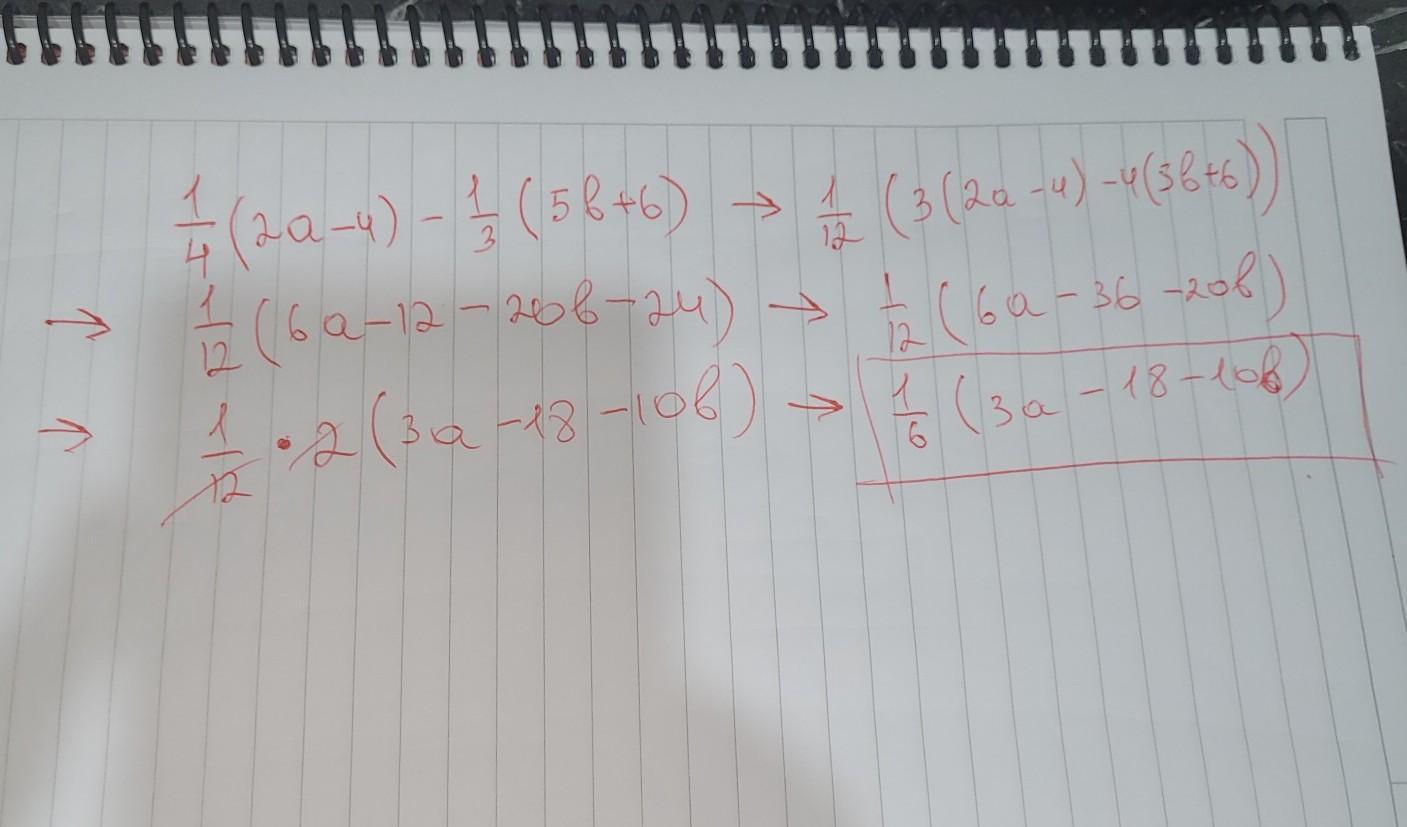 1/4 (2a-4) - 1/3 (5b+6) → 1/12 (3(2a-4)-4(3b+6))
→ 1/12 (6a-12-20b-24) → 1/12 (6a-36-20b)
→ 1/12 • 2 (3a-18-10b) → 1/6 (3a-18-10b)